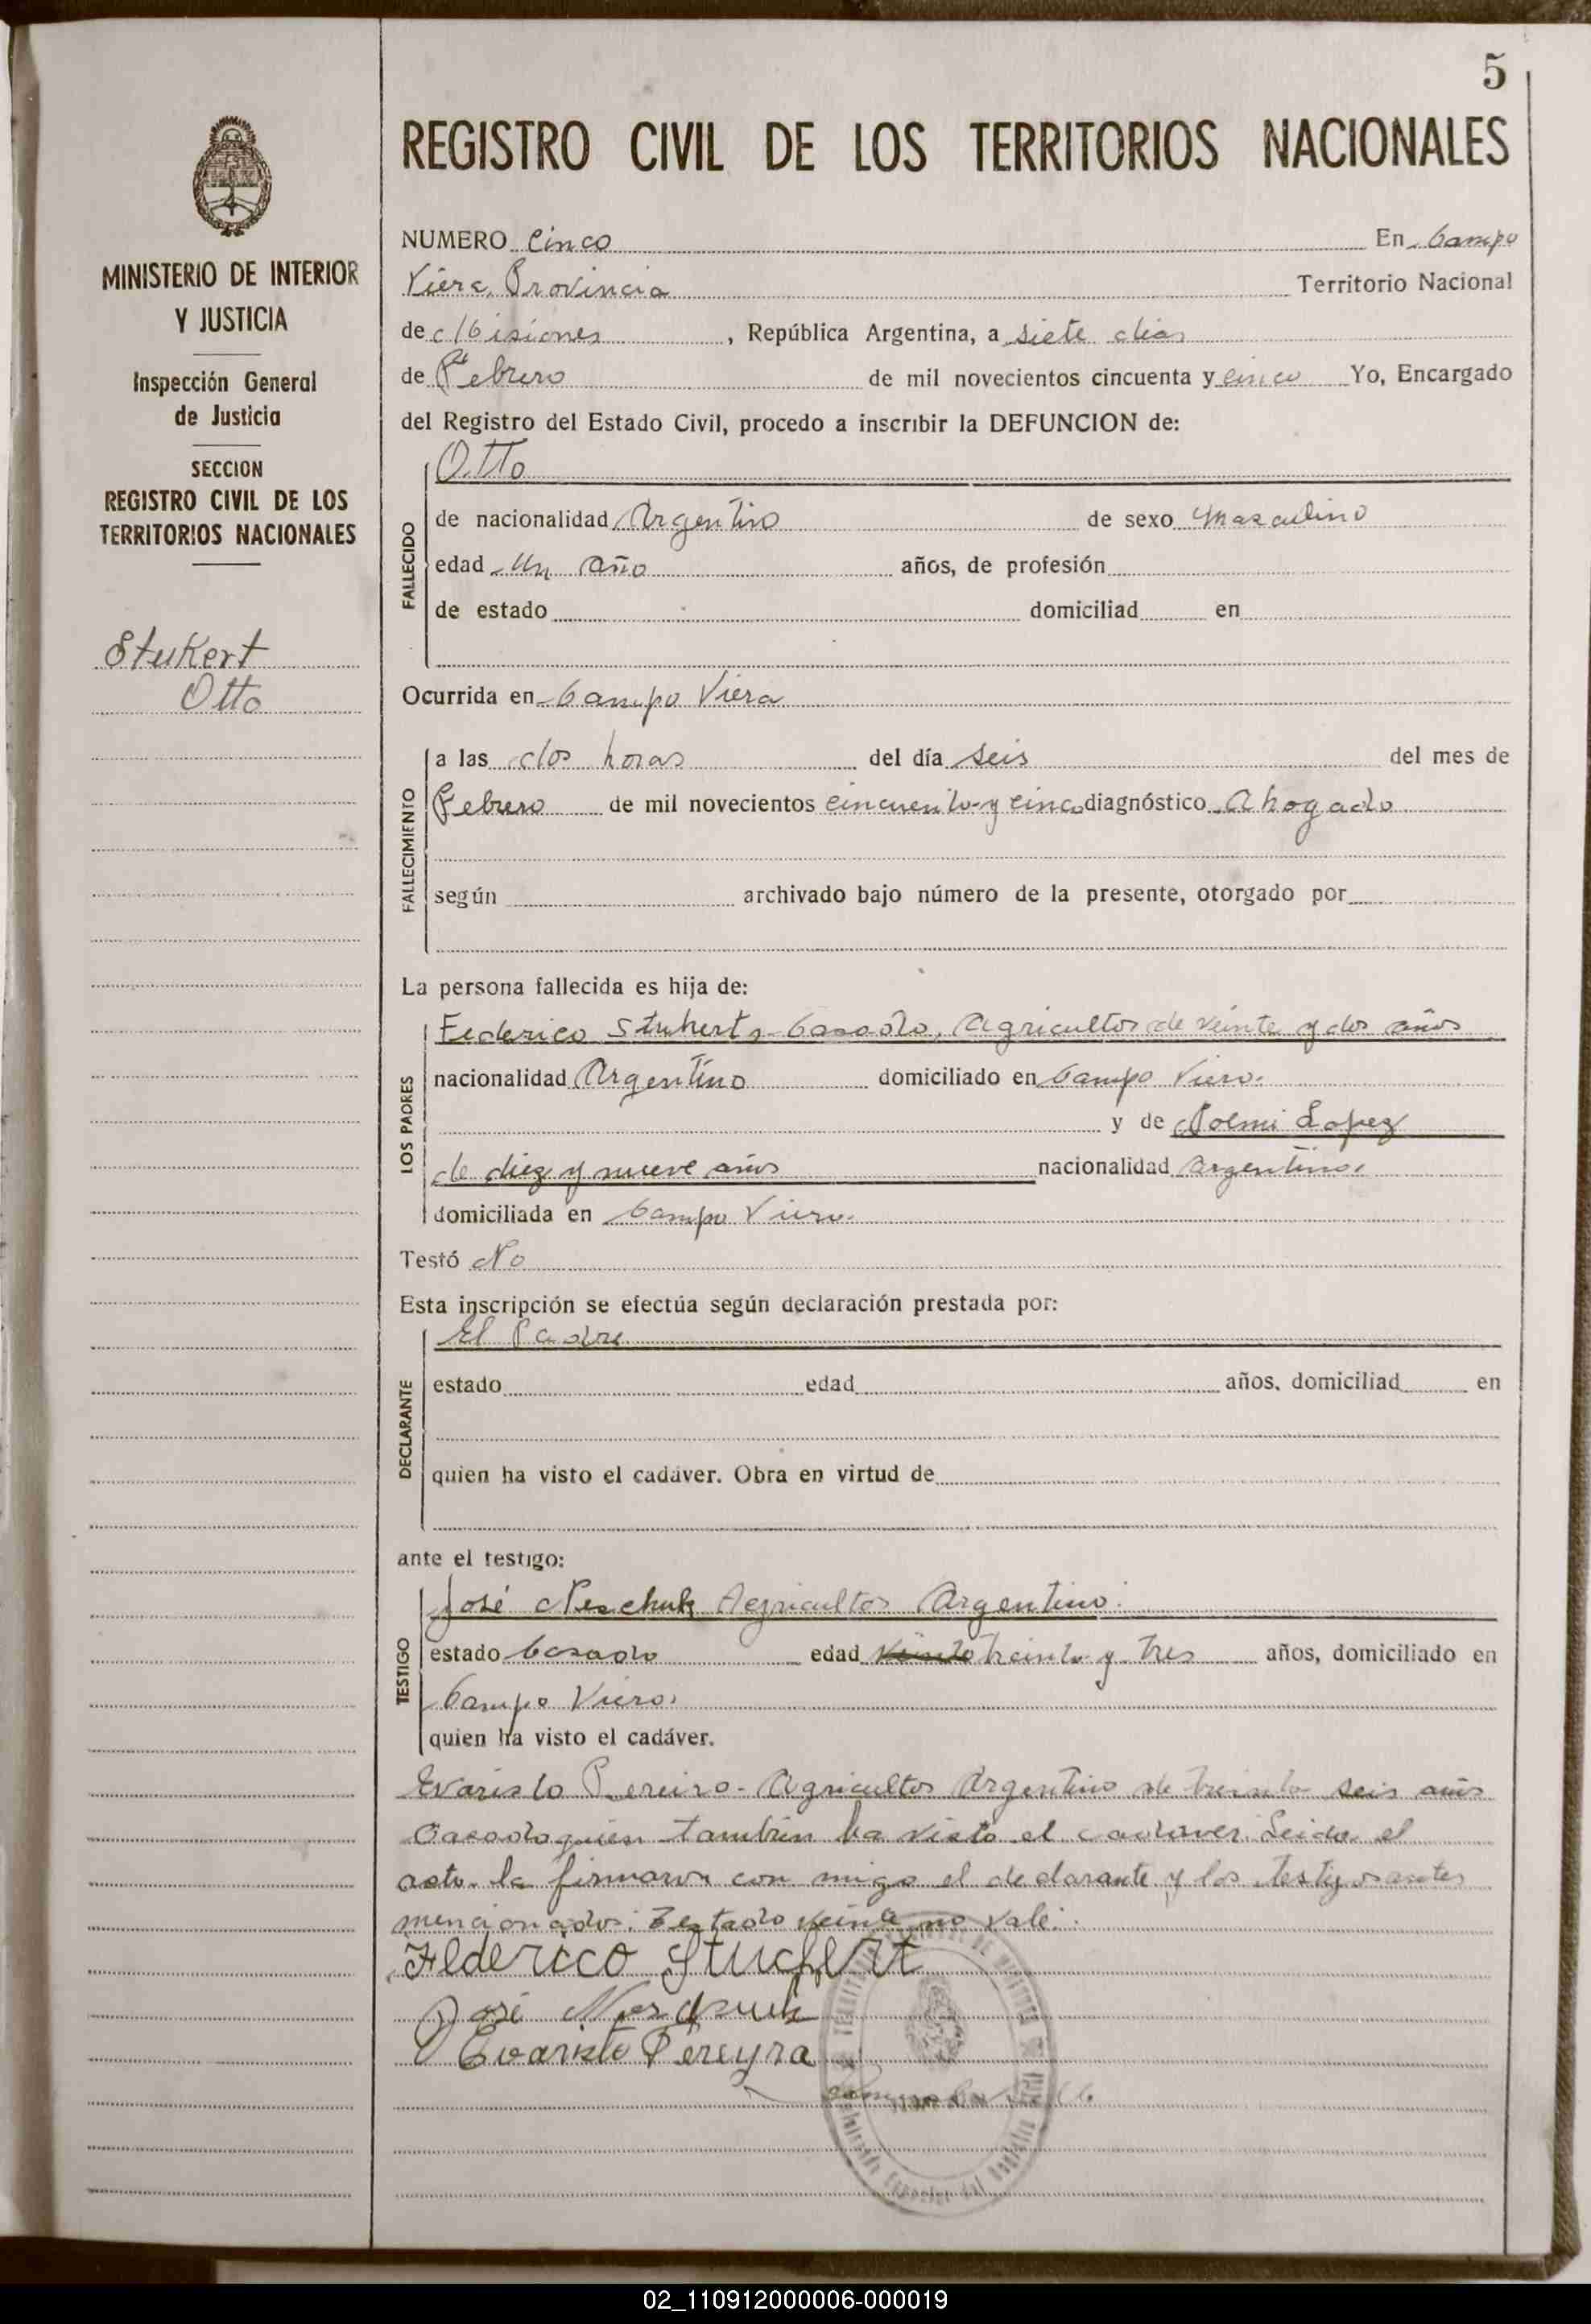 5
REGISTRO CIVIL DE LOS TERRITORIOS NACIONALES
MINISTERIO DE INTERIOR
Y JUSTICIA
Inspección General
de Justicia
SECCION
REGISTRO CIVIL DE LOS
TERRITORIOS NACIONALES
Stukert
Otto
NUMERO Cinco En Campo
Viera, Provincia Territorio Nacional
de Misiones, República Argentina, a siete dias
de Febrero de mil novecientos cincuenta y cinco Yo, Encargado
del Registro del Estado Civil, procedo a inscribir la DEFUNCION de:
FALLECIDO
Otto
de nacionalidad Argentino de sexo Masculino
edad Un año años, de profesión
de estado domiciliad en
Ocurrida en Campo Viera
FALLECIMIENTO
a las dos horas del día seis del mes de
Febrero de mil novecientos cincuenta y cinco diagnóstico Ahogado
según archivado bajo número de la presente, otorgado por
La persona fallecida es hija de:
LOS PADRES
Federico Stukert, Casado, Agricultor de veinte y dos años
nacionalidad Argentino domiciliado en Campo Viera.
y de Noemi Lopez
de diez y nueve años nacionalidad Argentina.
domiciliada en Campo Viera.
Testó No
Esta inscripción se efectúa según declaración prestada por:
DECLARANTE
El Padre
estado edad años, domiciliad en
quien ha visto el cadáver. Obra en virtud de
ante el testigo:
TESTIGO
José Neschuk Agricultor Argentino.
estado Casado edad veinte treinta y tres años, domiciliado en
Campo Viera.
quien ha visto el cadáver.
Evaristo Pereira - Agricultor Argentino de treinta seis años
Casado quien tambien ha visto el cadaver. Leida el
acta la firmaron con migo el declarante y los testigos antes
mencionados. Testado veinte no vale.
Federico Stuckert
José Neschuk
Evaristo Pereyra
02_110912000006-000019